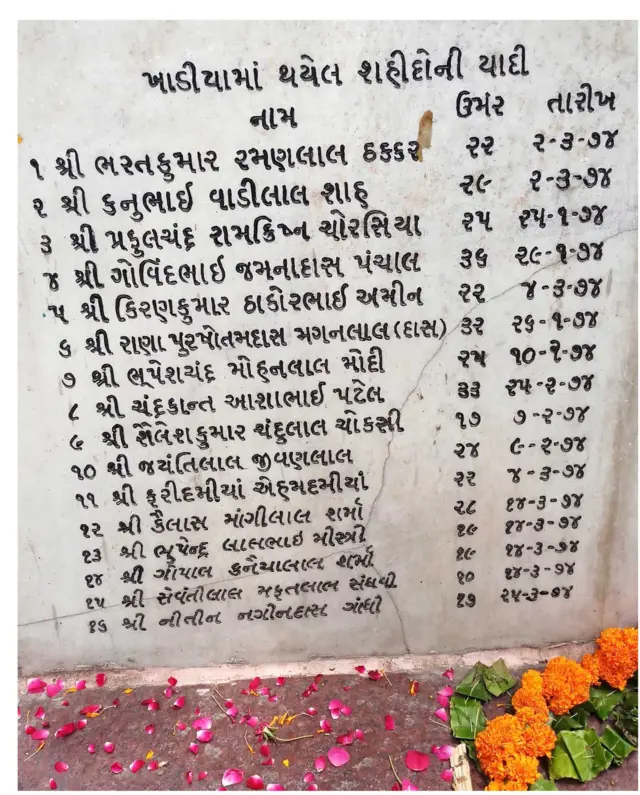 ખાડીયામાં થયેલ શહીદોની યાદી
નામ ઉમંર તારીખ
૧ શ્રી ભરતકુમાર રમણલાલ ઠક્કર ૨૨ ૨-૩-૭૪
૨ શ્રી કનુભાઈ વાડીલાલ શાહ ૨૯ ૨-૩-૭૪
૩ શ્રી પ્રફુલચંદ્ર રામક્રિષ્ન ચોરસિયા ૨૫ ૨૫-૧-૭૪
૪ શ્રી ગોવિંદભાઈ જમનાદાસ પંચાલ ૩૬ ૨૯-૧-૭૪
૫ શ્રી કિરણકુમાર ઠાકોરભાઈ અમીન ૨૨ ૪-૩-૭૪
૬ શ્રી રાણા પુરષોતમદાસ મગનલાલ(દાસ) ૩૨ ૨૬-૧-૭૪
૭ શ્રી ભૂપેશચંદ્ર મોહનલાલ મોદી ૨૫ ૧૦-૨-૭૪
૮ શ્રી ચંદ્રકાન્ત આશાભાઈ પટેલ ૩૩ ૨૫-૨-૭૪
૯ શ્રી શૈલેશકુમાર ચંદુલાલ ચોકસી ૧૭ ૭-૨-૭૪
૧૦ શ્રી જયંતિલાલ જીવણલાલ ૨૪ ૯-૨-૭૪
૧૧ શ્રી ફરીદમીયાં એહમદમીયાં ૨૨ ૪-૩-૭૪
૧૨ શ્રી કૈલાસ માંગીલાલ શર્મા ૨૮ ૧૪-૩-૭૪
૧૩ શ્રી ભૂપેન્દ્ર લાલભાઇ મીસ્ત્રી ૧૯ ૧૪-૩-૭૪
૧૪ શ્રી ગોપાલ કનૈયાલાલ શર્મા ૧૯ ૧૪-૩-૭૪
૧૫ શ્રી સેવંતીલાલ મફતલાલ સંઘવી ૧૦ ૧૪-૩-૭૪
૧૬ શ્રી નીતીન નગીનદાસ ગાંધી ૧૭ ૨૫-૩-૭૪